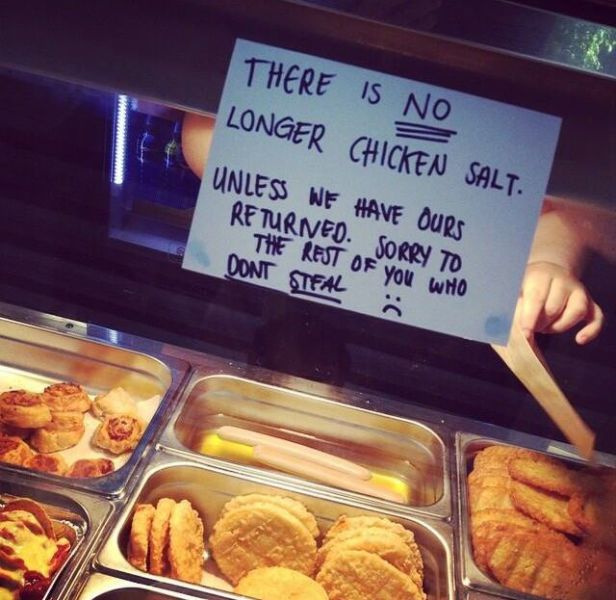 THERE IS NO
LONGER CHICKEN SALT.
UNLESS WE HAVE OURS
RETURNED. SORRY TO
THE REST OF YOU WHO
DONT STEAL :(